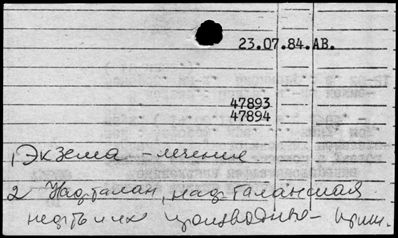 23.07.84.АВ.
47893
47894
1, Экзема - лечение
2 Нафталан, нафталанская
нефть и их производные - прим.